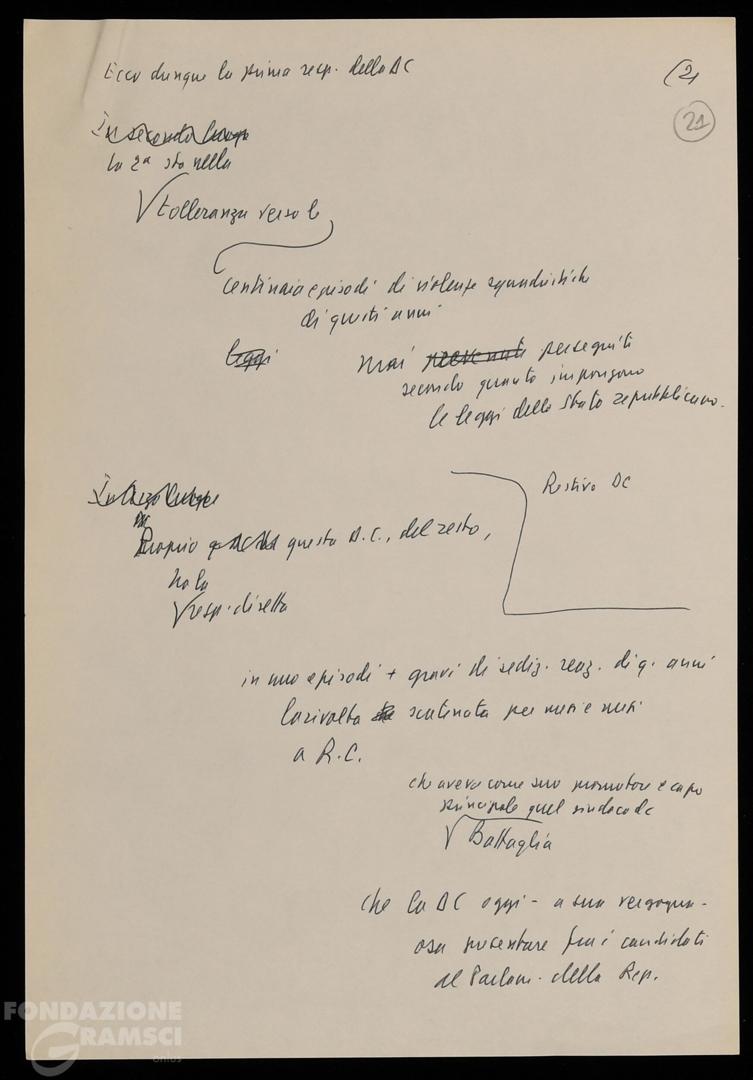 Ecco dunque la prima resp. della DC
(2
21
In secondo luogo
la 2ª sta nella
tolleranza verso le
centinaia episodi di violenze squadristiche
di questi anni
leggi
mai prevenuti perseguiti
secondo quanto impongono
le leggi dello Stato repubblicano.
Restivo DC
In terzo luogo
Proprio questa D.C., del resto,
ha la
resp. diretta
in uno episodi + gravi di sediz. reaz. di q. anni
la rivolta scatenata per mesi e mesi
a R.C.
che aveva come suo promotore e capo
principale quel sindaco dc
Battaglia
che la DC oggi - a sua vergogna -
osa presentare fra i candidati
al Parlam. della Rep.
FONDAZIONE
GRAMSCI
onlus